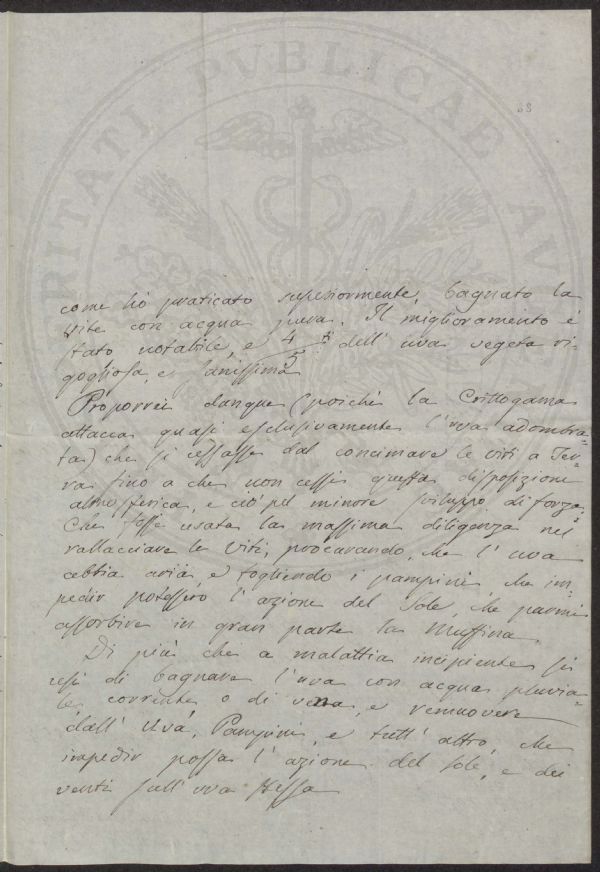 VTILITATI PVBLICAE AV
68
come ho praticato superiormente, bagnato la
vite con acqua pura. Il miglioramento è
stato notabile, e 4/5 dell'uva vegeta ri-
gogliosa, e sanissima
Proporrei dunque (poichè la Crittogama
attacca quasi esclusivamente l'uva adombra-
ta) che si cessasse dal concimare le viti a Ter-
ra fino a che non cessi questa disposizione
atmosferica, e ciò pel minore sviluppo di forza.
Che fosse usata la massima diligenza nel
rallacciare le viti, procurando, che l'uva
abbia aria, e togliendo i pampini che im-
pedir potessero l'azione del Sole, che parmi
assorbire in gran parte la Muffina
Di più che a malattia incipiente si
usi di bagnare l'uva con acqua pluvia-
le, corrente o di vena, e remuovere
dall'Uva, Pampini, e tutt'altro, che
impedir possa l'azione del sole, e dei
venti sull'uva stessa